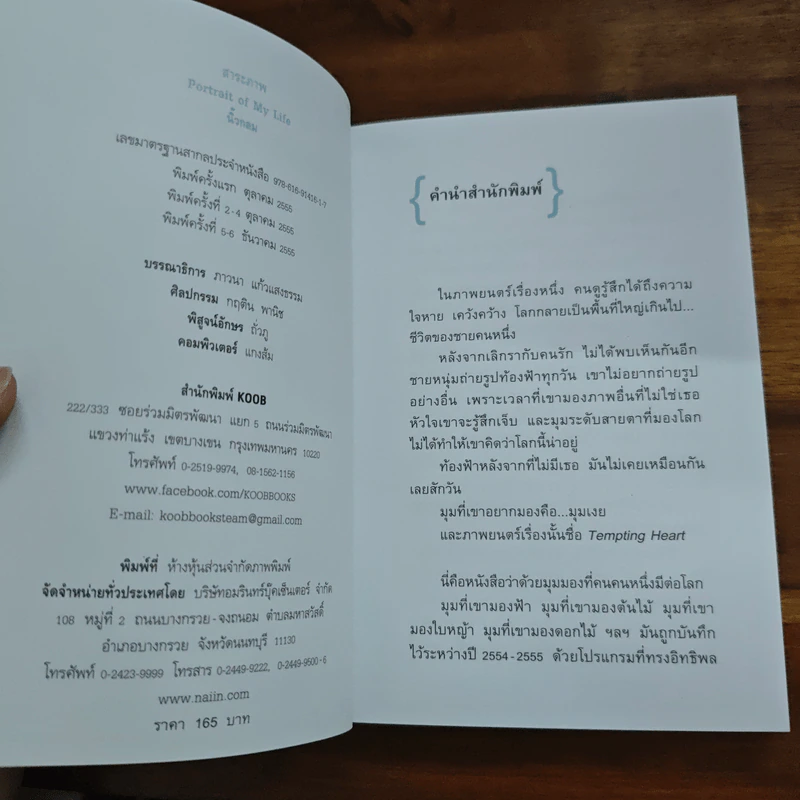 สาระภาพ
Portrait of My Life
นิ้วกลม
เลขมาตรฐานสากลประจำหนังสือ 978-616-91416-1-7
พิมพ์ครั้งแรก ตุลาคม 2555
พิมพ์ครั้งที่ 2-4 ตุลาคม 2555
พิมพ์ครั้งที่ 5-6 ธันวาคม 2555
บรรณาธิการ ภาวนา แก้วแสงธรรม
ศิลปกรรม กฤติน พานิช
พิสูจน์อักษร ถั่วภู
คอมพิวเตอร์ แกงส้ม
สำนักพิมพ์ KOOB
222/333 ซอยร่วมมิตรพัฒนา แยก 5 ถนนร่วมมิตรพัฒนา
แขวงท่าแร้ง เขตบางเขน กรุงเทพมหานคร 10220
โทรศัพท์ 0-2519-9974, 08-1562-1156
www.facebook.com/KOOBBOOKS
E-mail: koobbooksteam@gmail.com
พิมพ์ที่ ห้างหุ้นส่วนจำกัดภาพพิมพ์
จัดจำหน่ายทั่วประเทศโดย บริษัทอมรินทร์บุ๊คเซ็นเตอร์ จำกัด
108 หมู่ที่ 2 ถนนบางกรวย-จงถนอม ตำบลมหาสวัสดิ์
อำเภอบางกรวย จังหวัดนนทบุรี 11130
โทรศัพท์ 0-2423-9999 โทรสาร 0-2449-9222, 0-2449-9500-6
www.naiin.com
ราคา 165 บาท
{คำนำสำนักพิมพ์}
ในภาพยนตร์เรื่องหนึ่ง คนดูรู้สึกได้ถึงความ
ใจหาย เคว้งคว้าง โลกกลายเป็นพื้นที่ใหญ่เกินไป...
ชีวิตของชายคนหนึ่ง
หลังจากเลิกรากับคนรัก ไม่ได้พบเห็นกันอีก
ชายหนุ่มถ่ายรูปท้องฟ้าทุกวัน เขาไม่อยากถ่ายรูป
อย่างอื่น เพราะเวลาที่เขามองภาพอื่นที่ไม่ใช่เธอ
หัวใจเขาจะรู้สึกเจ็บ และมุมระดับสายตาที่มองโลก
ไม่ได้ทำให้เขาคิดว่าโลกนี้น่าอยู่
ท้องฟ้าหลังจากที่ไม่มีเธอ มันไม่เคยเหมือนกัน
เลยสักวัน
มุมที่เขาอยากมองคือ...มุมเงย
และภาพยนตร์เรื่องนั้นชื่อ Tempting Heart
นี่คือหนังสือว่าด้วยมุมมองที่คนคนหนึ่งมีต่อโลก
มุมที่เขามองฟ้า มุมที่เขามองต้นไม้ มุมที่เขา
มองใบหญ้า มุมที่เขามองดอกไม้ ฯลฯ มันถูกบันทึก
ไว้ระหว่างปี 2554-2555 ด้วยโปรแกรมที่ทรงอิทธิพล